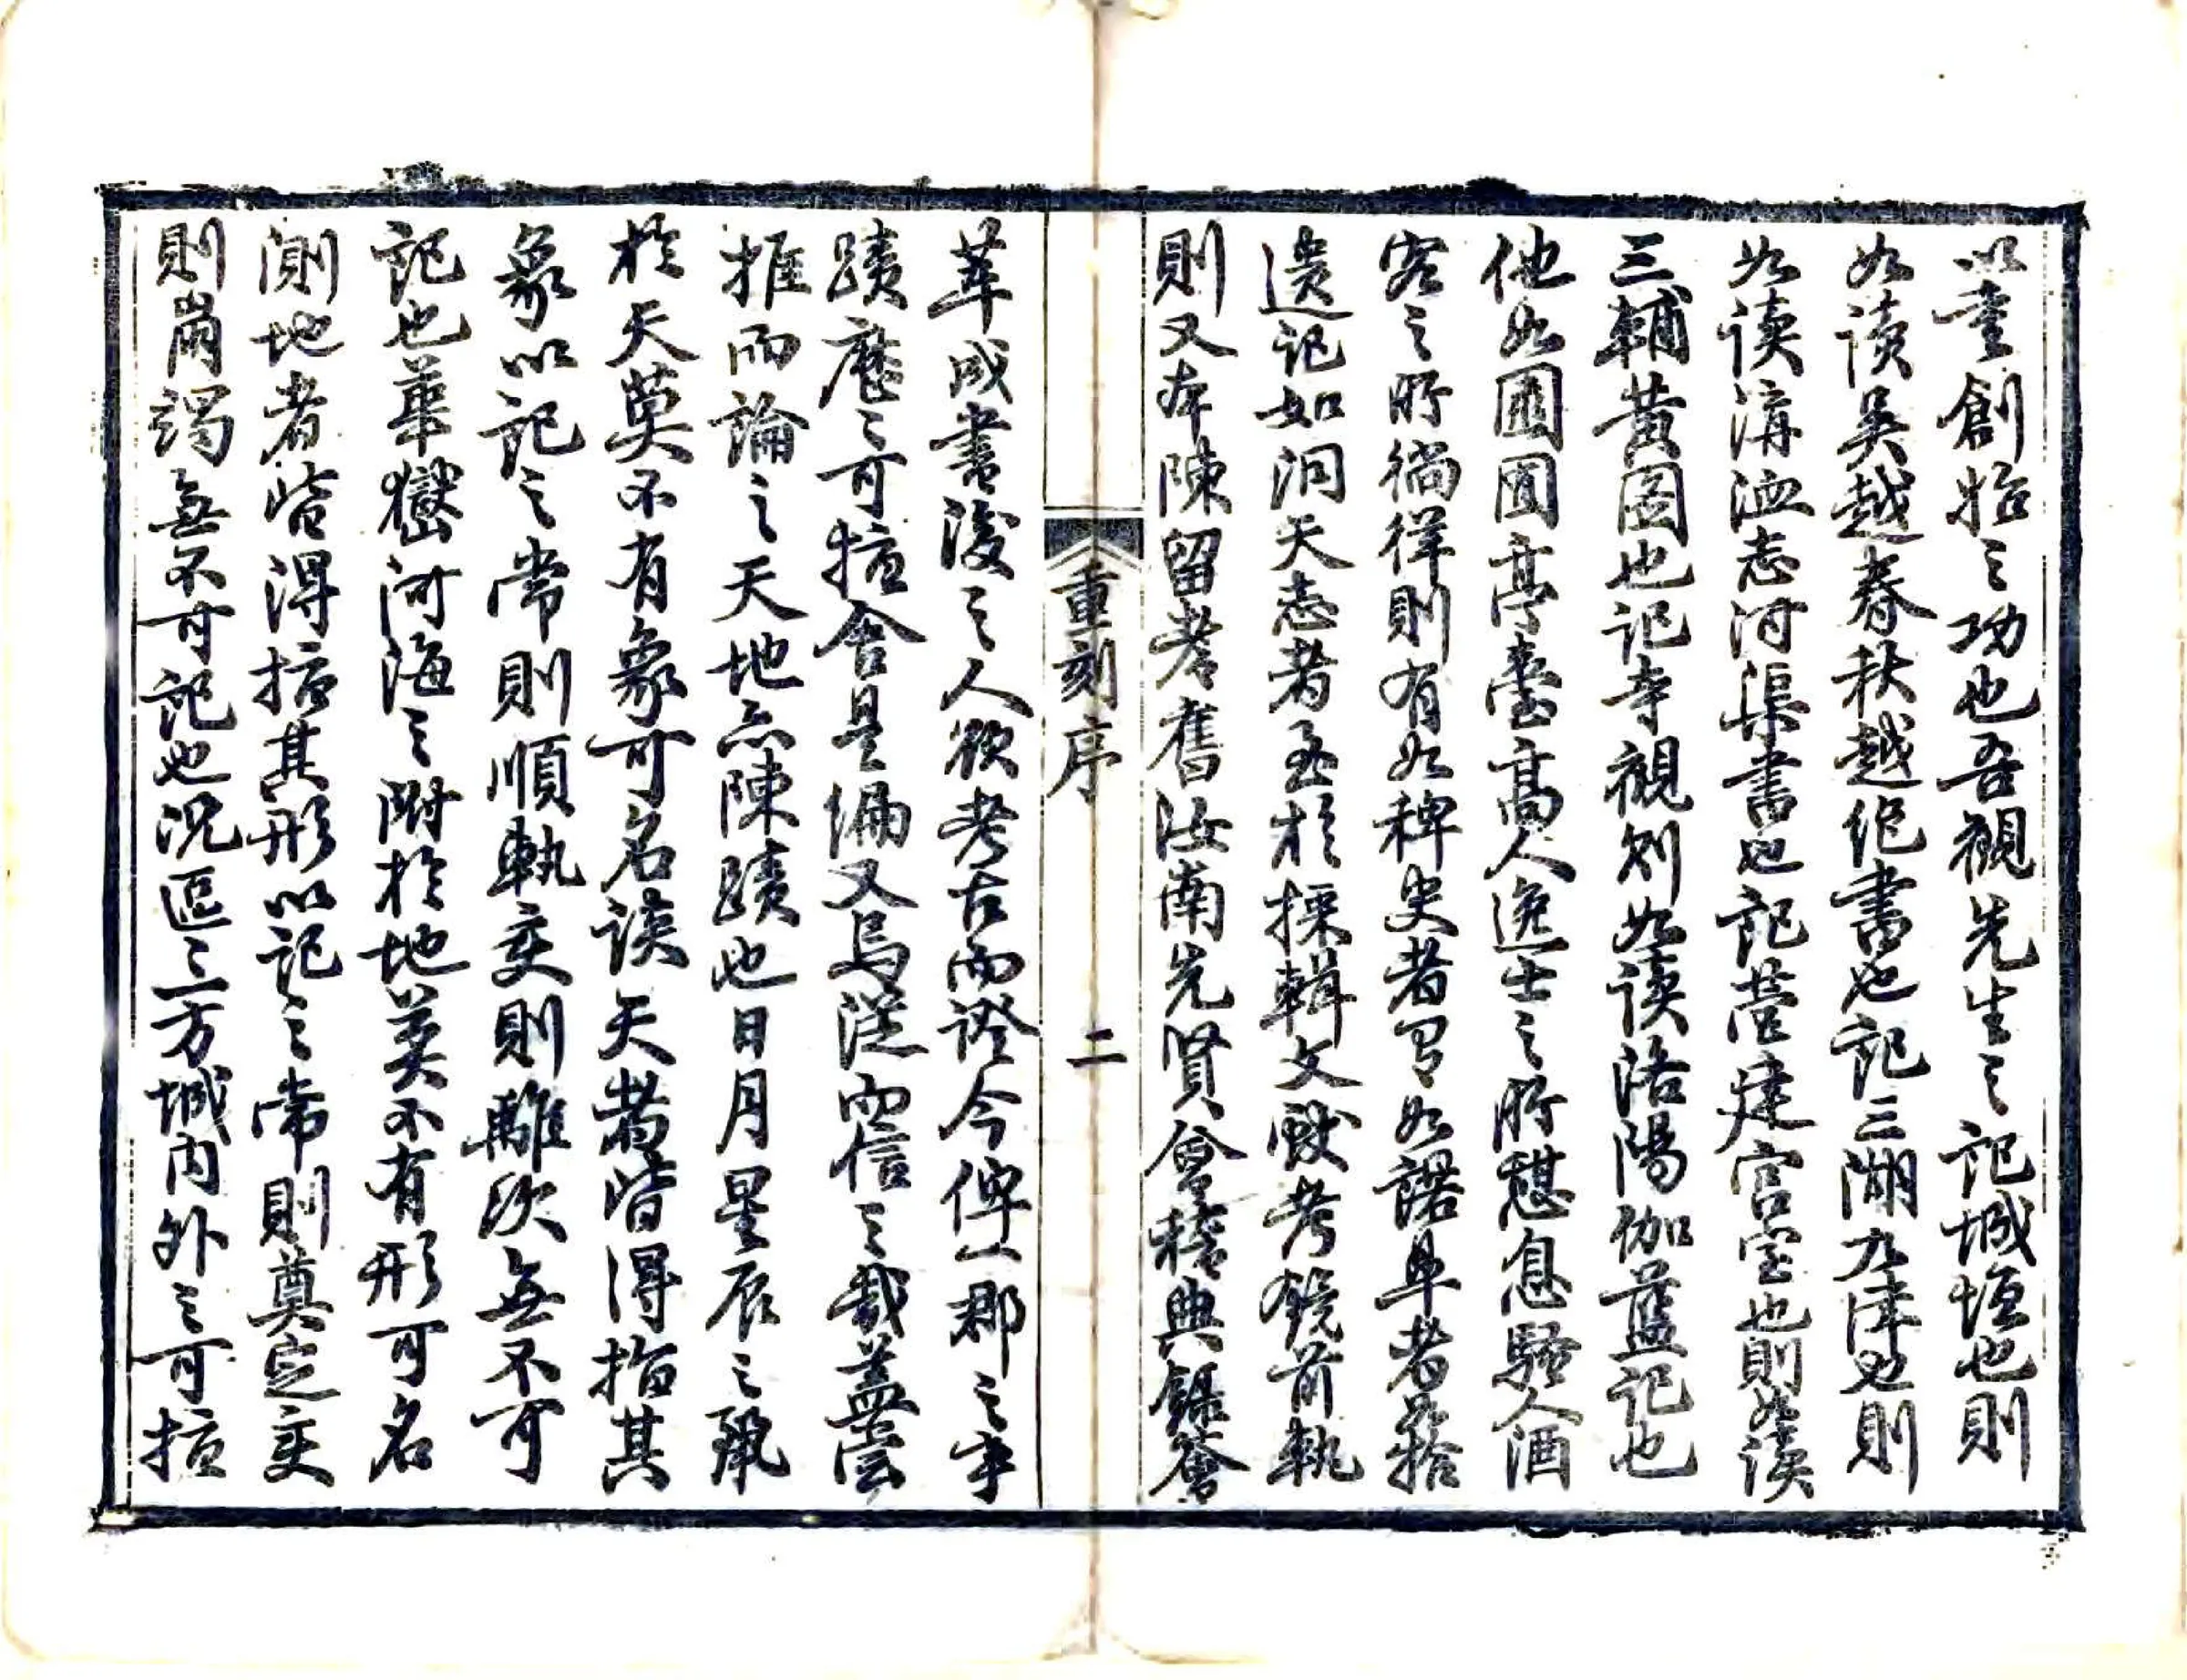 以重創始之功也吾觀先生之記城垣也則
如讀吳越春秋越絕書也記三湖九津也則
如讀溝洫志河渠書也記營建宮室也則如讀
三輔黃圖也記寺觀刹如讀洛陽伽藍記也
他如園囿亭臺高人逸士之所憩息騷人酒
客之所徜徉則有如稗史者有如諾皐者如拾
遺記如洞天志者至於採輯文獻考鏡前軌
則又本陳留耆舊汝南先賢會稽典錄薈
重刻序
二
萃成書後之人欲考古而證今俾一郡之事
蹟歷之可指舍是編又烏從而信之哉蓋嘗
推而論之天地亦陳蹟也日月星辰之
於天莫不有象可名談天者皆得指其
象以記之常則順軌変則離次無不可
記也華嶽河海之附於地莫不有形可名
測地者皆得指其形以記之常則奠定変
則崩竭無不可記也況區之方城內外之可指